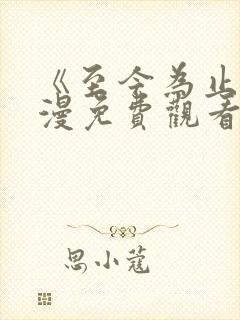 《至今為止
漫免費觀看
思小蔻